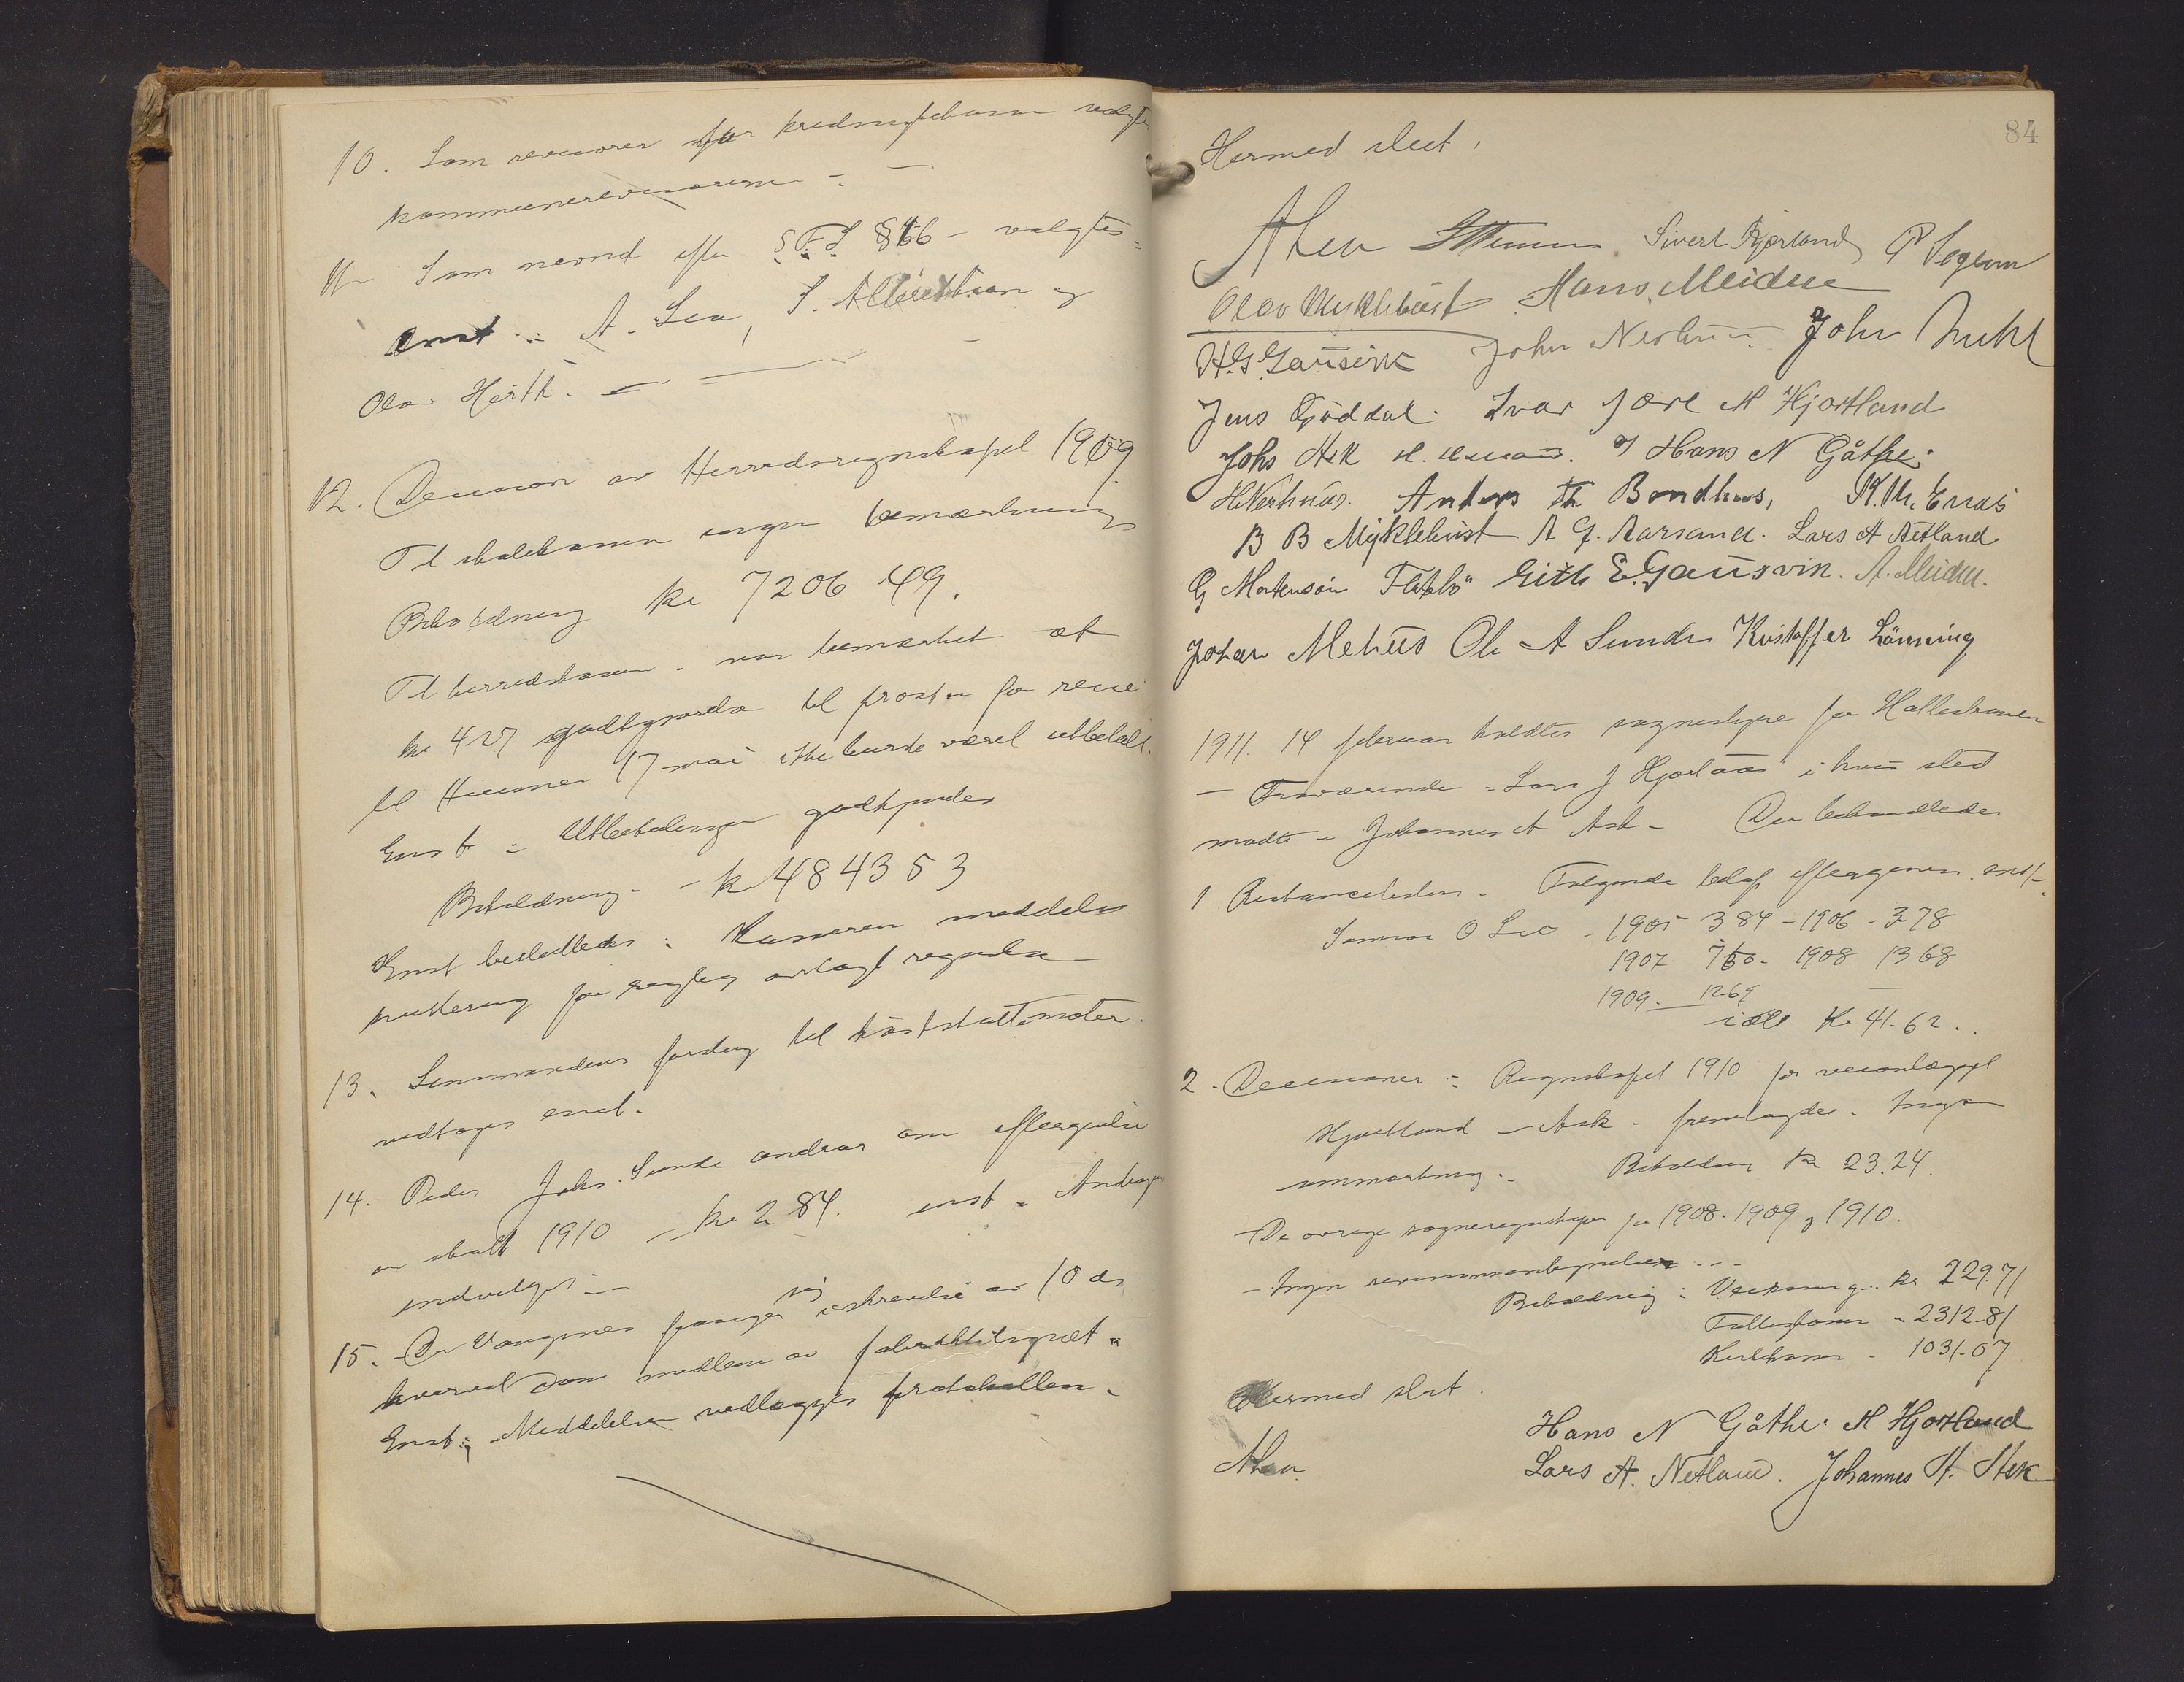 10. Som revisorer for kredsugtekassen valgtes
kommunerevisorerne -
11 Som nevnd efter S.F.L § 66 - valgtes
enst: A. Lea, S. Albrektson og
Olav Hørth. -
12. Decision av Herredsregnskapet 1909
Til skolekassen ingen bemærkning
Beholdning kr 7206 49.
Til herredskassen - var bemærket at
kr 427 godtgjorelse til prosten for reise
til 17 mai ikke burde været utbetalt.
Enst: Utbetalingen godkjendes
Beholdning - kr 4843 53
Enst besluttedes: Kasseren meddeles
kvittering for avlagt regnskap
13. Lensmandens forslag til høstskattemøter
vedtages enst.
14. Peder Johs. Sunde andrar om eftergivelse
av skatt 1910 - kr 2 84. enst - Andragen
indvilges -
15. Dr Vangsnes frasiger sig i skrivelse av 10 ds
hvervet som medlem av fabriktilsynet -
Enst: Meddelelsen vedlægges protokollen -
84
Hermed slut.
A Lea Sivert Hjortland
Olav Myklebust Hans Meidell
H. G. Gausvik John Nerhus John
Jens Gøddal. Ivar Jore M Hjortland
Johs Ask Hans N Gåthe.
H. Nerhus. Anders Th Bondhus,
B B Myklebust A G. Aarsand. Lars A Netland
G Mortenson Flatebø Gitle E. Gausvik. A. Meidell.
Johan Mehus Ole A Sunde Kristoffer Lönning
1911. 14 februar holdtes sognestyre for
- Fraværende - Lars J Hjortaas i hvis sted
møtte - Johannes A Ask - Der behandledes
1 Restancelisten - Følgende beløp eftergives enst -
O Lie - 1905 3 84 - 1906 - 3 78
1907 7 60 - 1908 13 68
1909. 12 69
i alt Kr 41.62..
2. Decisioner - Regnskapet 1910 for veianlægget
Hjortland - Ask - fremlagdes. Ingen
anmerkning. Beholdning kr 23.24.
- De øvrige sogneregnskaper for 1908. 1909 og 1910.
- Ingen revisionsantegnelser -
Beholdning: kr 229.71
Fattigkassen " 2312-81
Kirkekassen - 1031-07
Hermed slut.
Hans N Gåthe. M Hjortland
A Lea Lars A. Netland. Johannes A. Ask